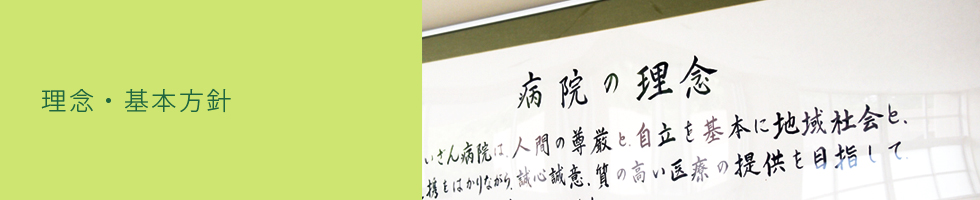 理念・基本方針
病院の理念
いさん病院は、人間の尊厳と自立を基本に地域社会と、
携をはかりながら、誠心誠意、質の高い医療の提供を目指して